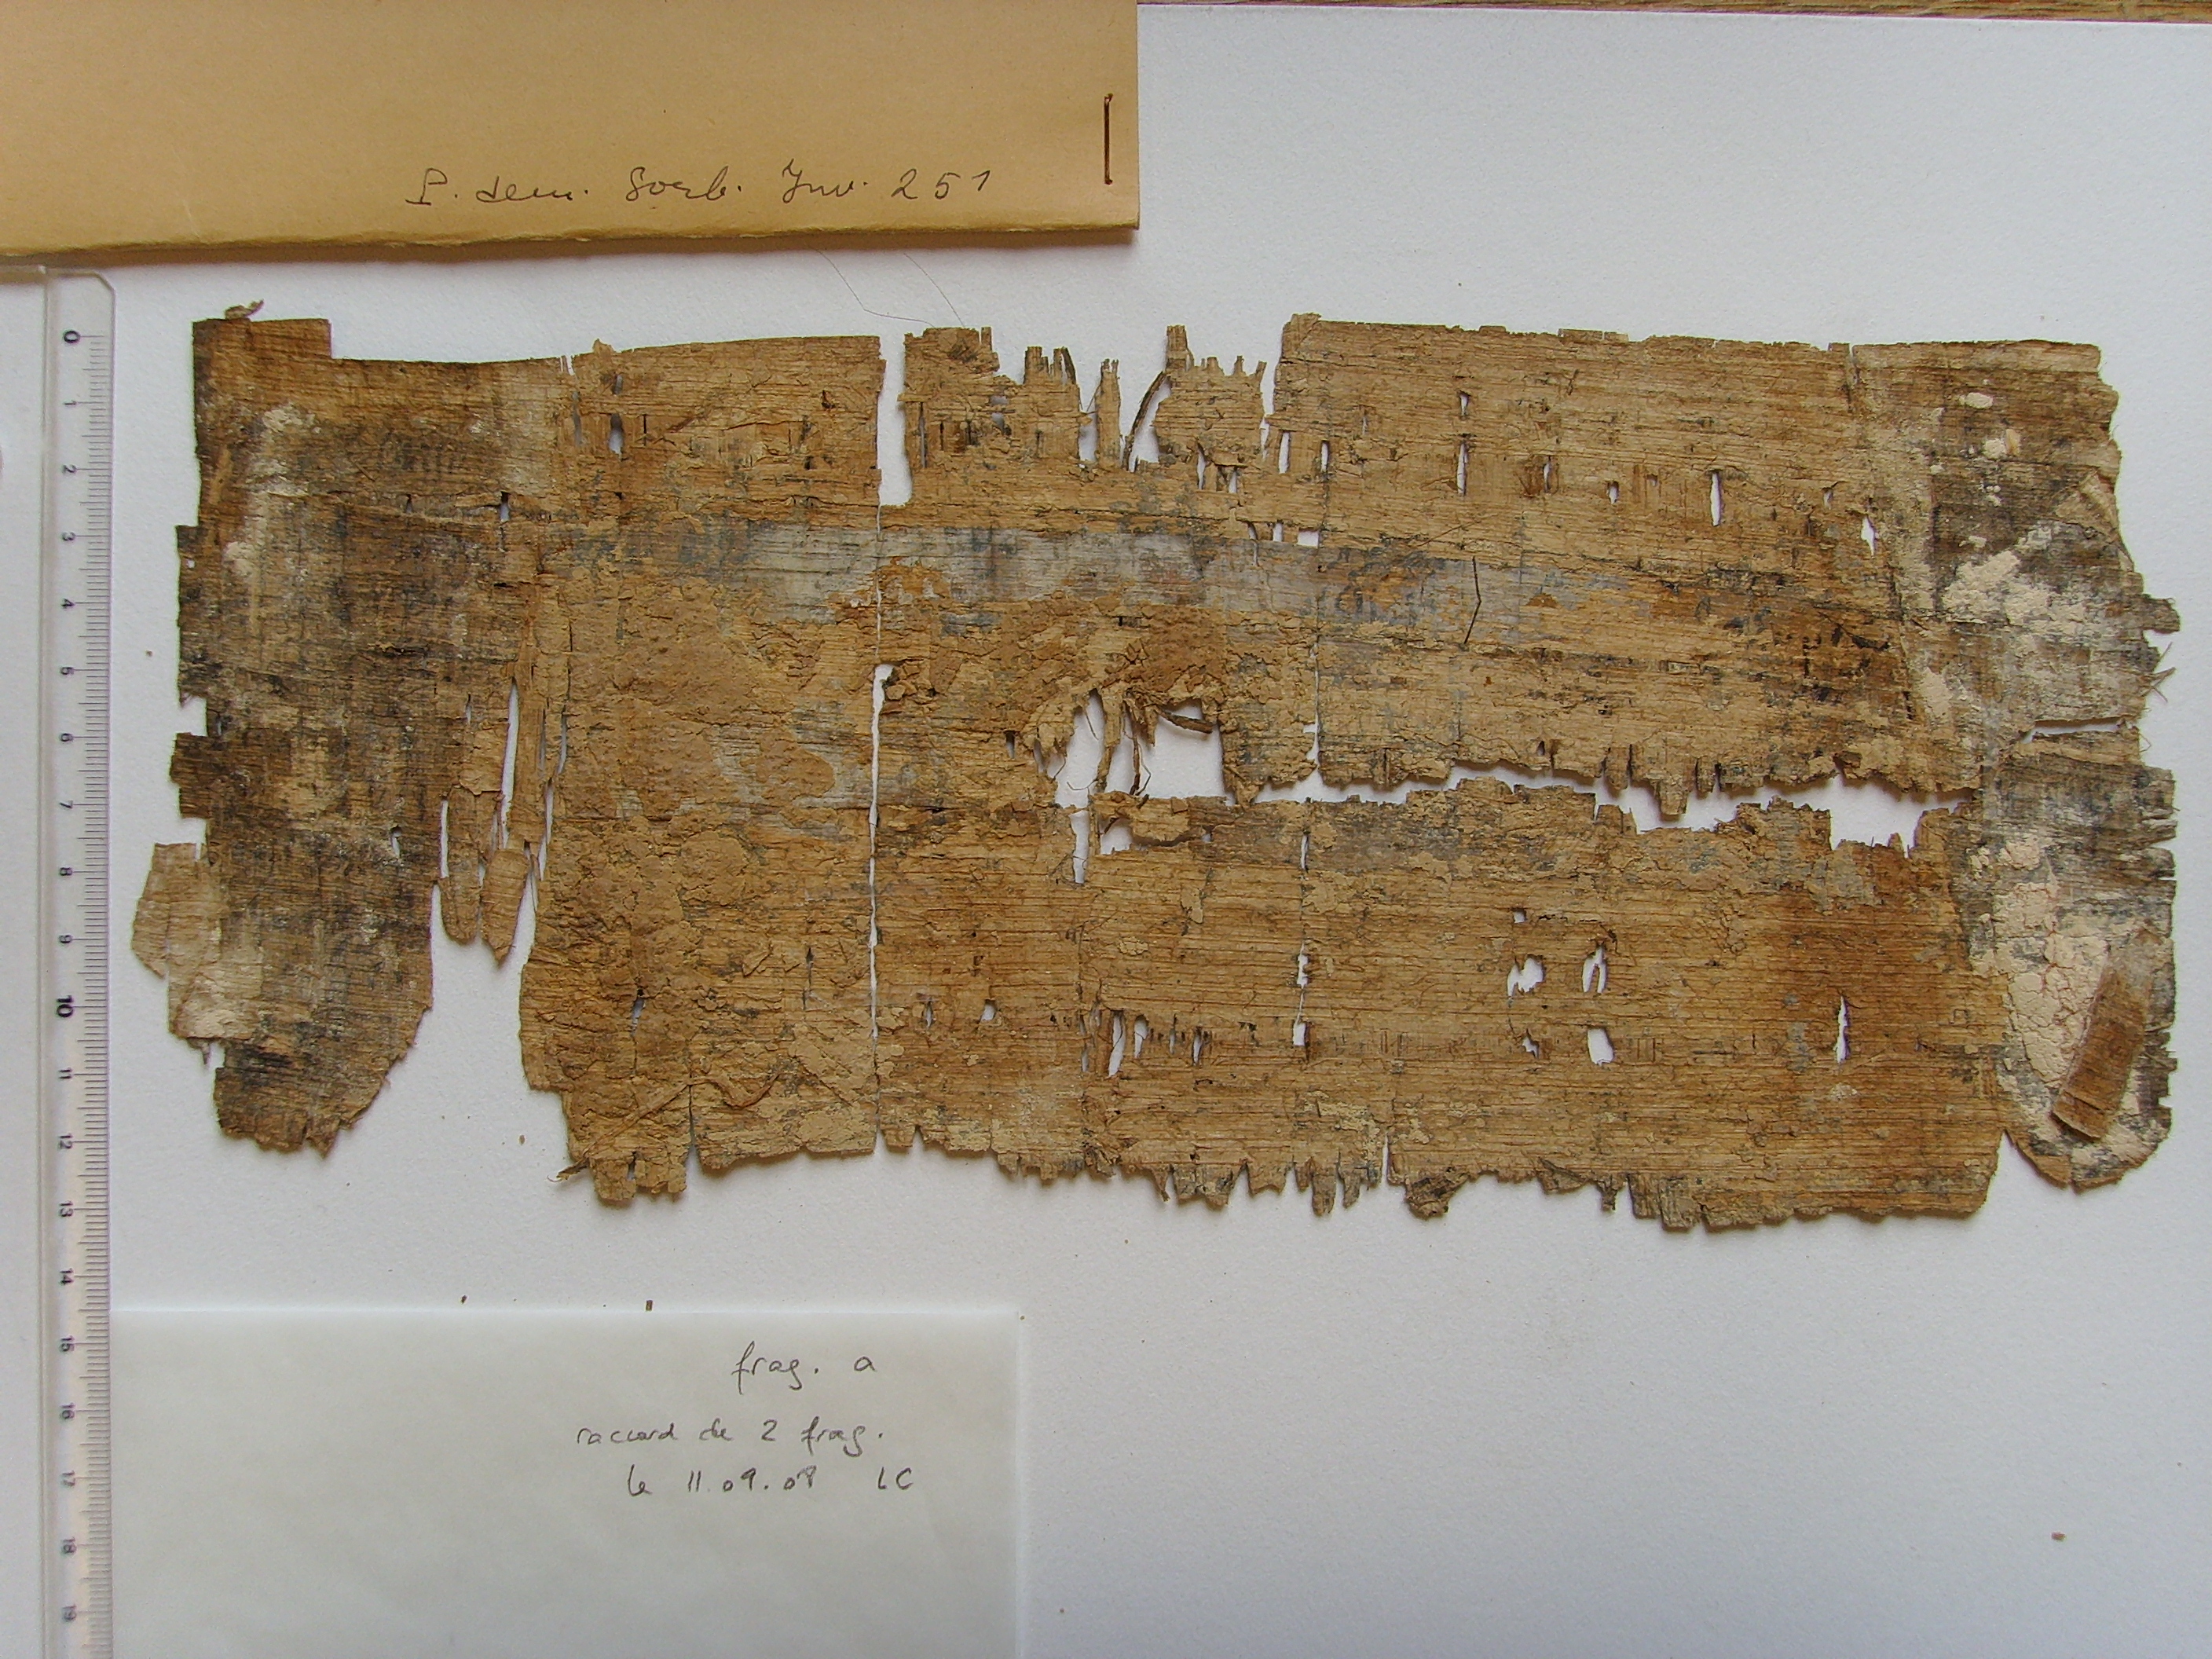 P. dem. Sorb. Inv. 251
0
1
2
3
4
5
6
7
8
9
10
11
12
13
14
15
16
17
18
19
frag. a
raccord de 2 frag.
le 11.09.08 LC